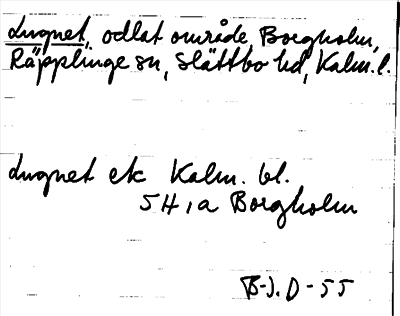 Lugnet, odlat område Borgholm,
Räpplinge sn, Slättbo hd, Kalm. l.
Lugnet ek Kalm. bl.
5 H 1 a Borgholm
B-J. D-55